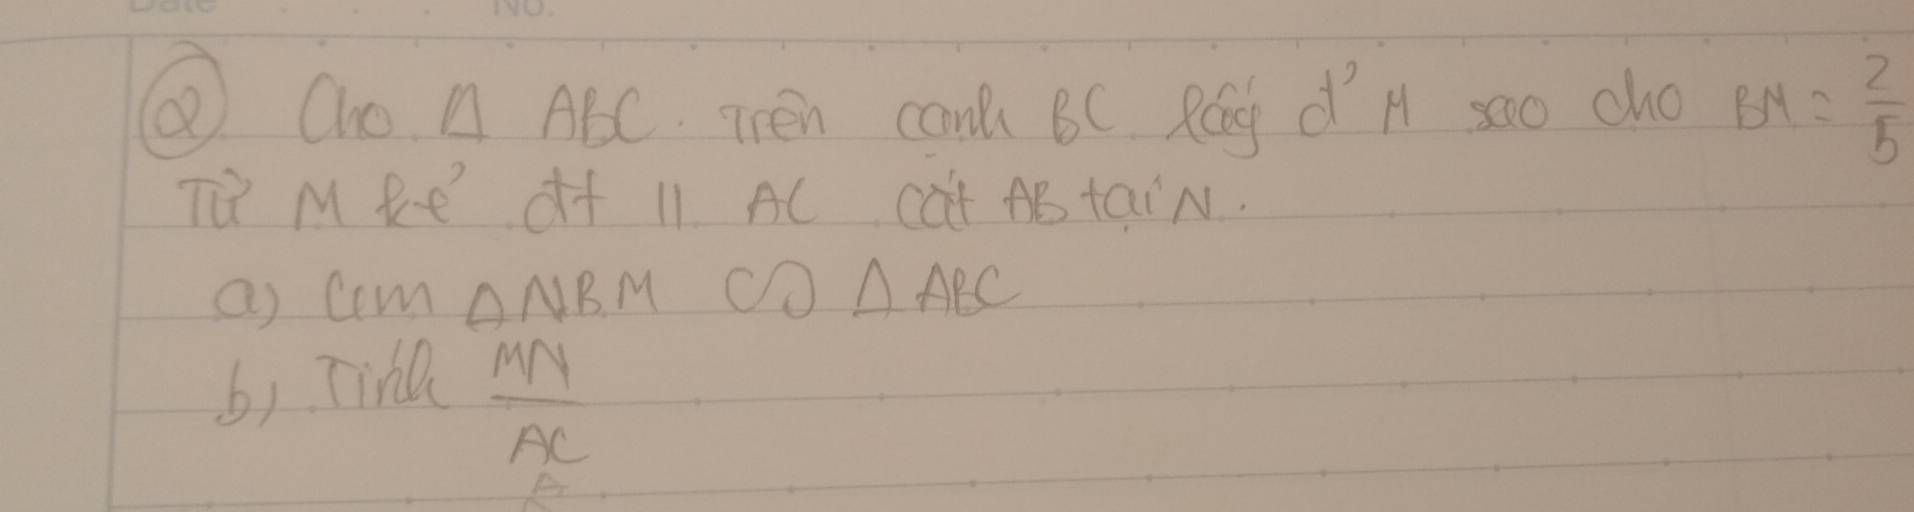 Date No.
② Cho Δ ABC. Trên cạnh BC lấy đ' M sao cho BM = 2/5
Từ M kẻ đt // AC cắt AB tại N.
a) Cm Δ NBM ∽ Δ ABC
b) Tính MN/AC